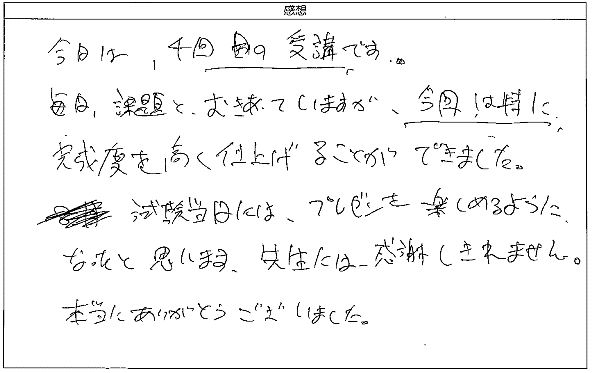 感想
今日は、4回目の受講です。
毎日、課題と、むきあっていますが、今回は特に、
完成度を高く仕上げることができました。
試験当日には、プレゼンを楽しめるように、
なったと思います、先生には、感謝しきれません。
本当にありがとうございました。